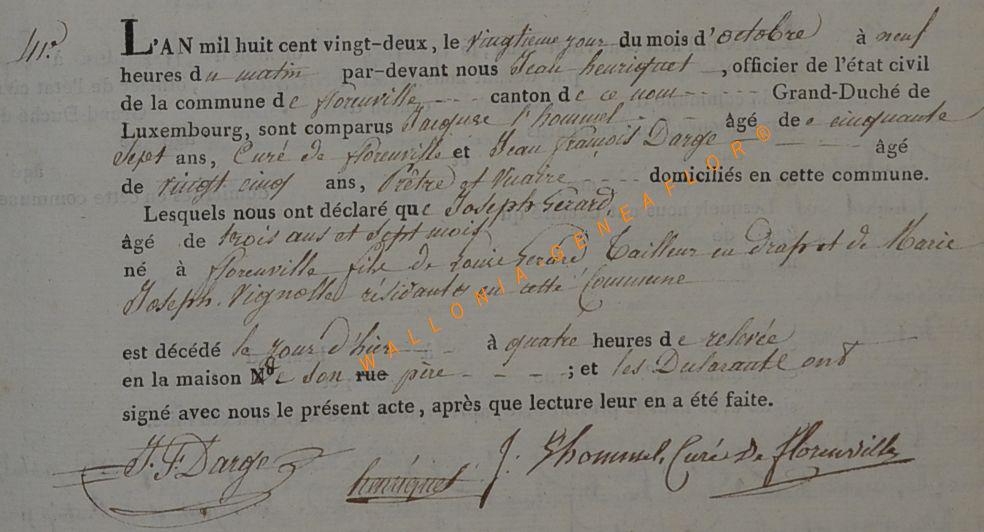 41.e L'AN mil huit cent vingt-deux, le vingtieme jour du mois d'octobre à neuf
heures du matin par-devant nous Jean henriquet, officier de l'état civil
de la commune de florenville - - - canton de ce nom - - - - Grand-Duché de
Luxembourg, sont comparus Jacques l'hommel - - âgé de cinquante
Sept ans, Curé de florenville et Jean françois Darge - - - - âgé
de vingt cinq ans, Prêtre et Vicaire - - - - domiciliés en cette commune.
Lesquels nous ont déclaré que Joseph Gerard,
âgé de trois ans et Sept mois
né à florenville fils de Louis Gerard Tailleur en drap et de Marie
Joseph Vignolle résidants en cette Commune
est décédé le jour d'hier - - à quatre heures de relevée
en la maison N° de son rue père - - - - ; et les Déclarants ont
signé avec nous le présent acte, après que lecture leur en a été faite.
J. F. Darge henriquet J. l'hommel, Curé de florenville
WALLONIA-GENEAFLOR®